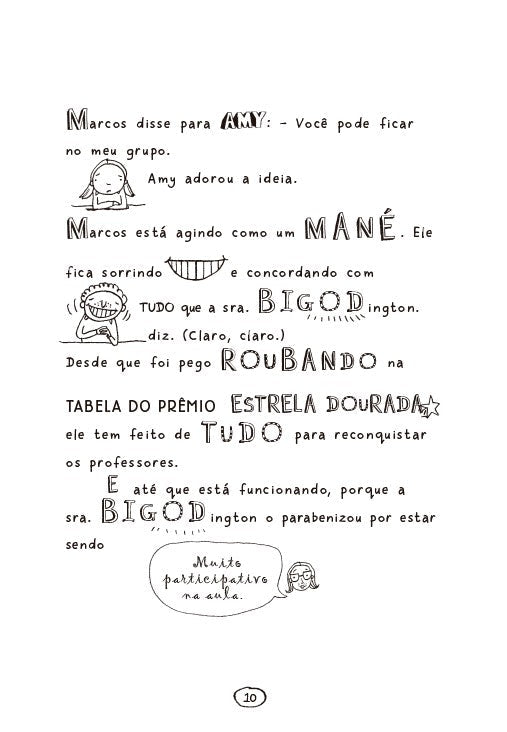 Marcos disse para AMY: - Você pode ficar
no meu grupo.
Amy adorou a ideia.
Marcos está agindo como um MANÉ. Ele
fica sorrindo e concordando com
TUDO que a sra. BIGODington.
diz. (Claro, claro.)
Desde que foi pego ROUBANDO na
TABELA DO PRÊMIO ESTRELA DOURADA
ele tem feito de TUDO para reconquistar
os professores.
E até que está funcionando, porque a
sra. BIGODington o parabenizou por estar
sendo
Muito
participativo
na aula.
10